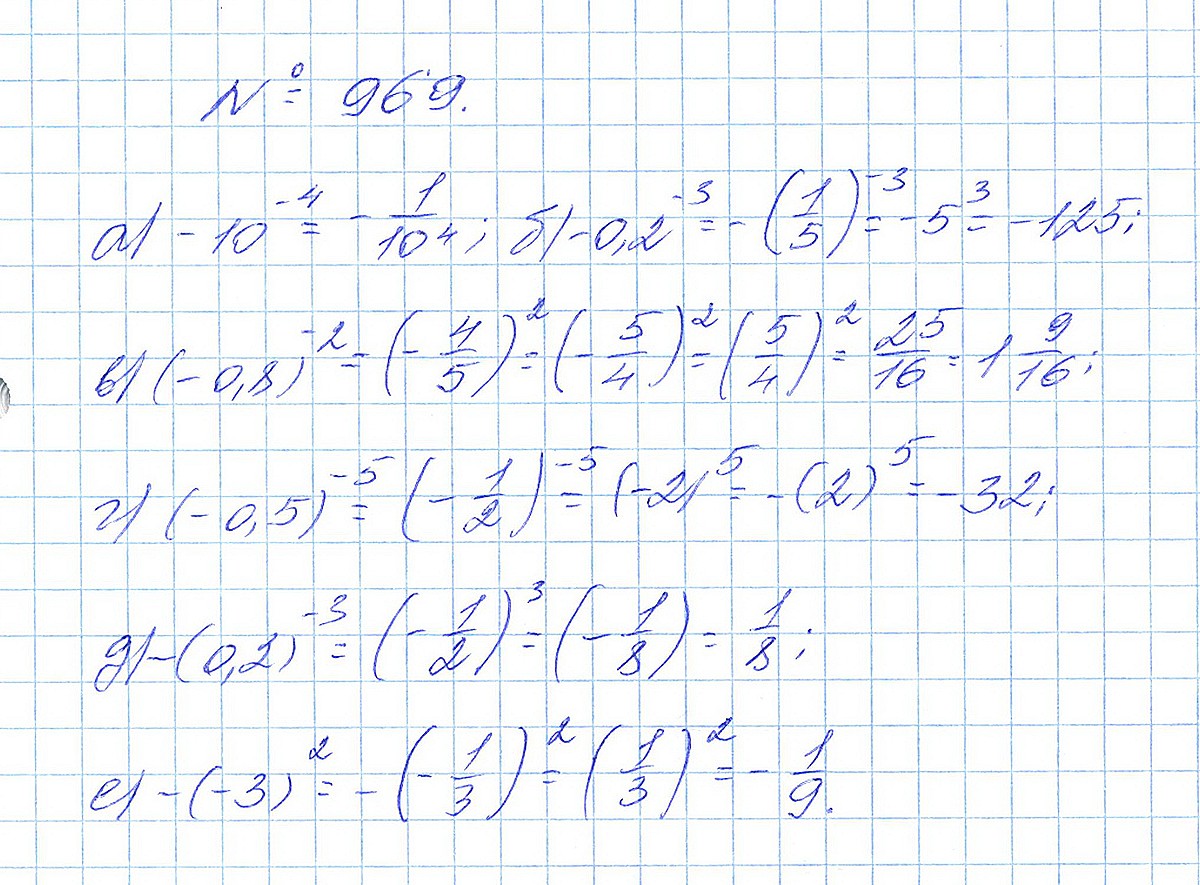 № 969.
а) -10^-4 = -1/10^4; б) -0,2^-3 = -(1/5)^-3 = -5^3 = -125;
в) (-0,8)^-2 = (-4/5)^2 = (-5/4)^2 = (5/4)^2 = 25/16 = 1 9/16;
г) (-0,5)^-5 = (-1/2)^-5 = (-2)^5 = -(2)^5 = -32;
д) -(0,2)^-3 = (-1/2)^3 = (-1/8) = 1/8;
е) -(-3)^2 = -(-1/3)^2 = (1/3)^2 = -1/9.